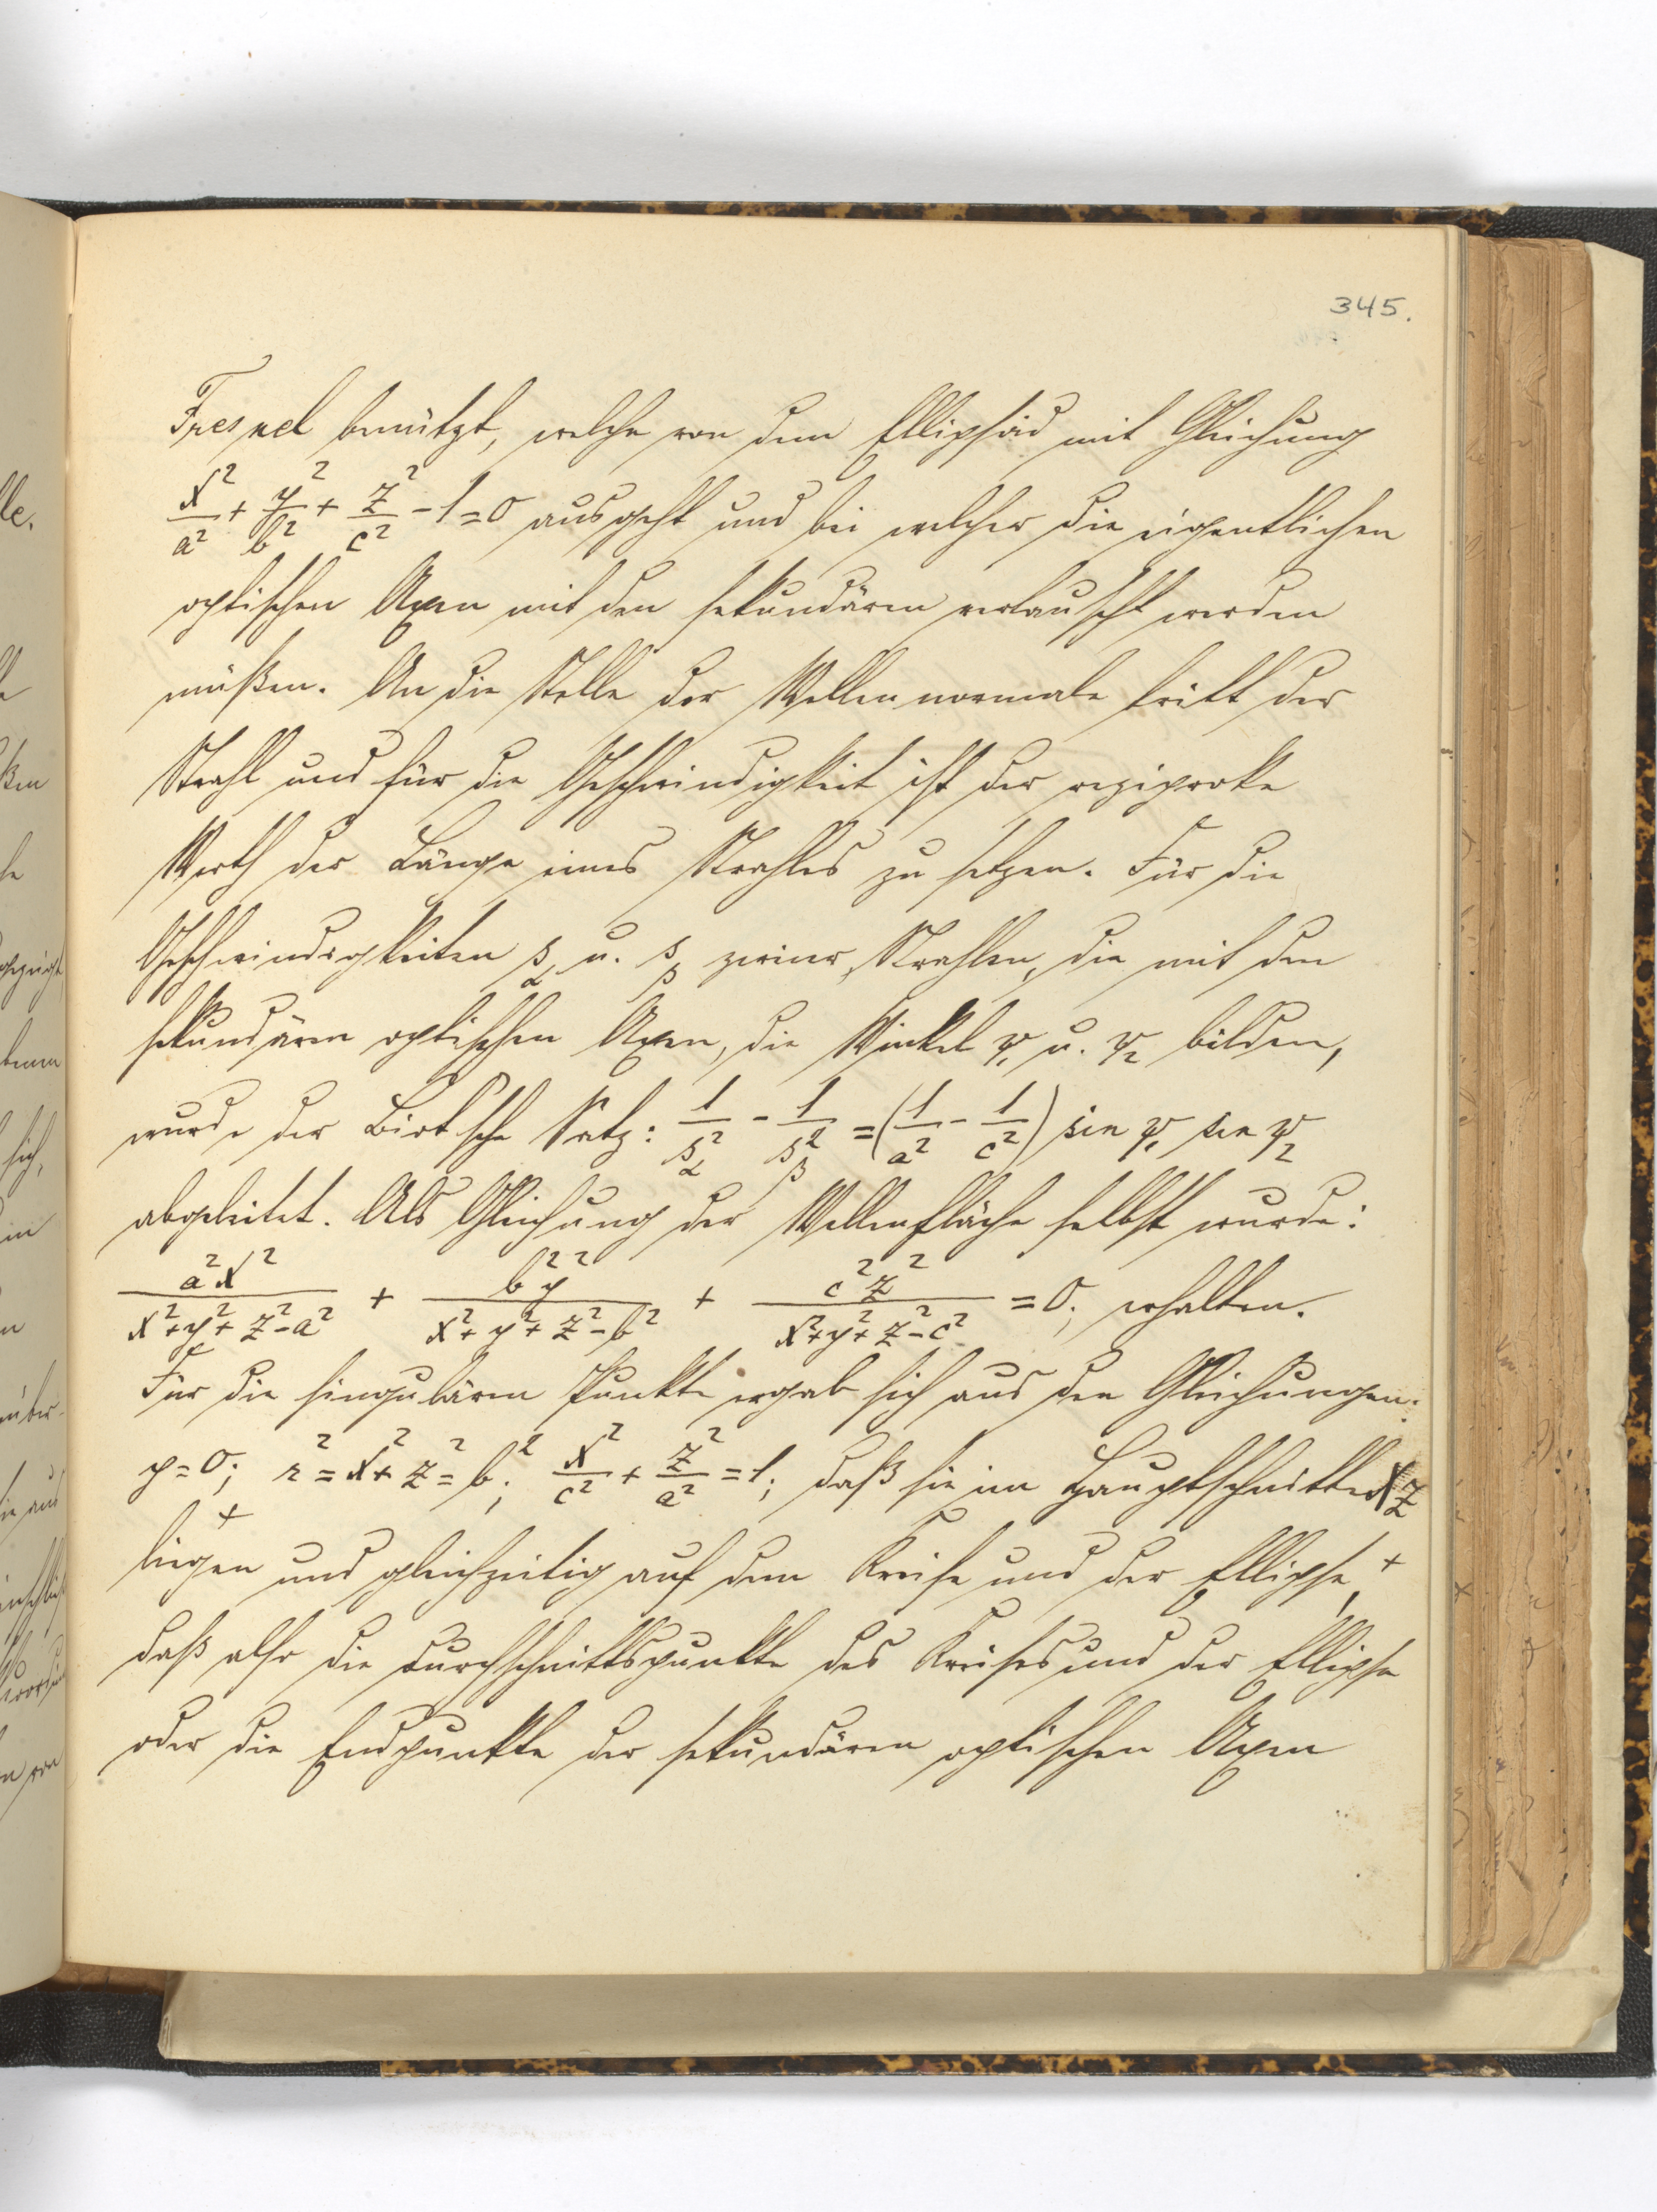 345.
Fresnel benützt, welche von dem Ellipsoid mit Gleichung
x²/a² + y²/b² + z²/c² - 1 = 0 ausgeht und bei welcher die eigentlichen
optischen Axen mit den sekundären vertauscht werden
müßen. An die Stelle der Wellennormale tritt der
Strahl und für die Geschwindigkeit ist der reziproke
Werth der Länge eines Strahles zu setzen. Für die
Geschwindigkeiten s_α u. s_β zweier Strahlen, die mit den
sekundären optischen Axen, die Winkel ψ₁ u. ψ₂ bilden,
wurde der Biot'sche Satz: 1/s_α² - 1/s_β² = (1/a² - 1/c²) sin ψ₁ sin ψ₂
abgeleitet. Als Gleichung der Wellenfläche selbst wurde:
a²x²/(x²+y²+z²-a²) + b²y²/(x²+y²+z²-b²) + c²z²/(x²+y²+z²-c²) = 0; erhalten.
Für die singulären Punkte ergab sich aus den Gleichungen:
y=0; r²=x²+z²=b²; x²/c² + z²/a² = 1; daß sie im Hauptschnitte XZ
liegen + und gleichzeitig auf dem Kreise und der Ellipse, +
daß also die Durchschnittspunkte des Kreises und der Ellipse
oder die Endpunkte der sekundären optischen Axen